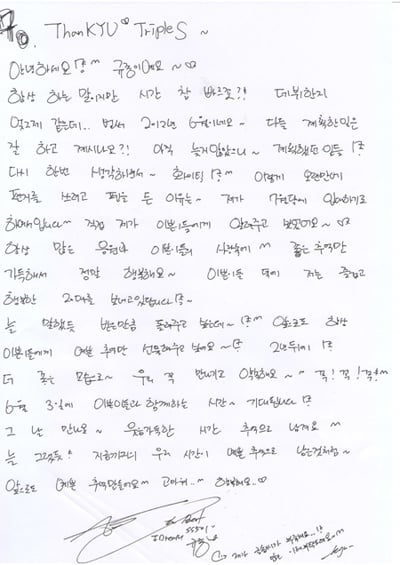 To. ThanKYU♡ TripleS ~
안녕하세요!? ^^ 규종이에요 ~ ♡
항상 하는 말이지만 시간 참 빠르죠?! 데뷔한지
엊그제 같은데.. 벌써 2012년 6월이네요~ 다들 계획한일은
잘 하고 계시나요?! 아직 늦지않았으니~ 계획했던 일들!?
다시 한번 생각하면서~ 화이팅!? ^^ 이렇게 오랜만에
편지를 쓰려고 펜을 든 이유는~ 제가 7월달에 입대하기로
직접 제가 이쁜이들에게 알려주고 싶었어요~ ♡
항상 많은 응원과 이쁜이들의 사랑속에 ^^ 좋은 추억만
가득해서 정말 행복해요~ 이쁜이들 덕에 저는 즐겁고
행복한 20대를 보내고있답니다!?~
늘 말했듯 받은만큼 돌려주고 싶은데~!? ^^ 앞으로도 항상
이쁜이들에게 예쁜 추억만 선물해주고 싶어요~!? 2년뒤에!?
더 좋은 모습으로~ 우리 꼭 만나기로 약속해요~ ^^ 꼭! 꼭! 꼭! ^^
6월 3일에 이쁜이들과 함께하는 시간~ 기대됩니다!?
그 날 만나요~ 웃음가득한 시간 추억으로 남겨요 ^^
늘 그랬듯 ^^ 지금까지의 우리 시간이 예쁜 추억으로 남은것처럼~
앞으로도 예쁜 추억만들어요^^ 고마워..^^ 사랑해요..♡
SS501
규종